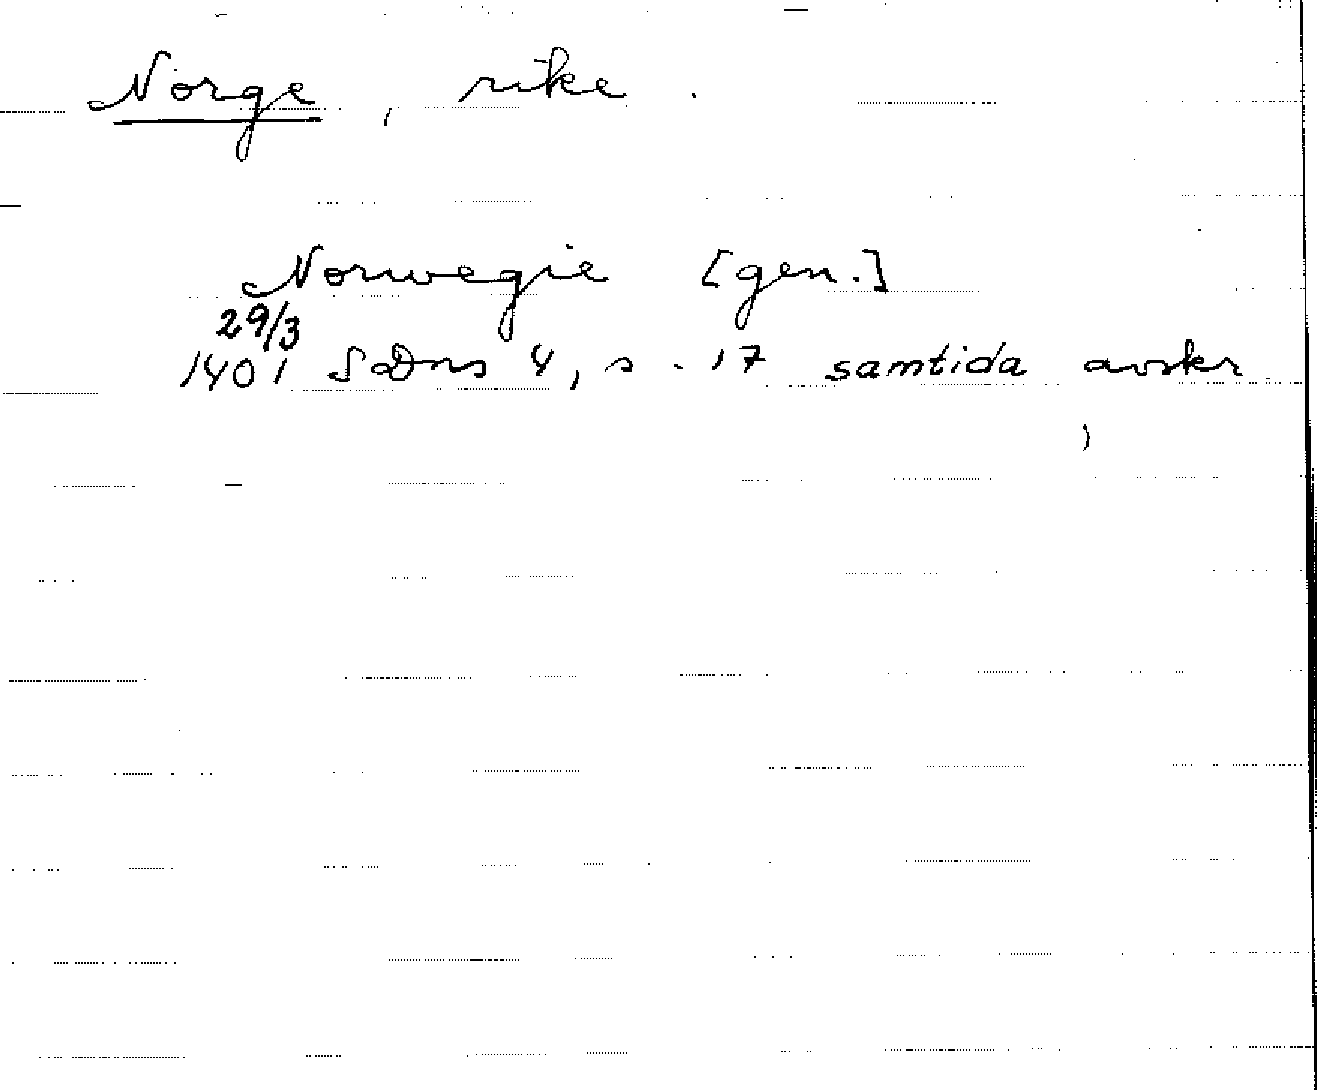 Norge, rike.
Norwegie [gen.]
29/3
1401 SDns 4, s. 17 samtida avskr